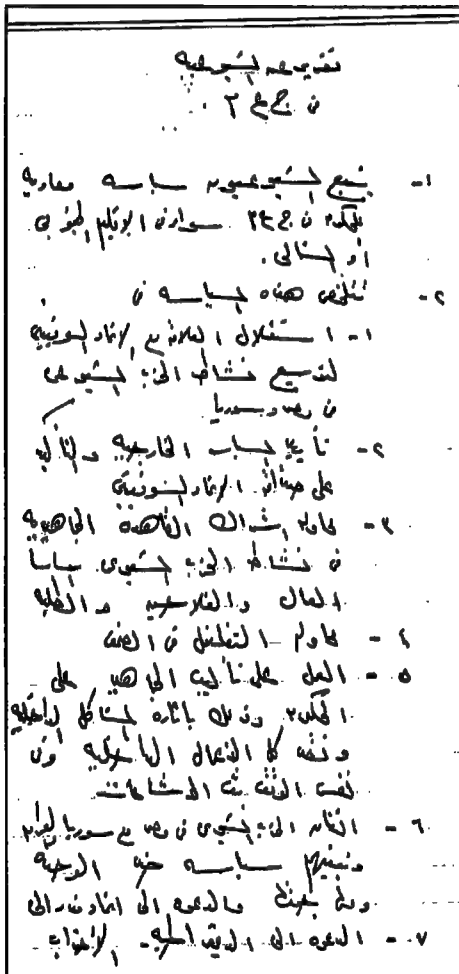 تقدير عن الشيوعيه
فى ج ع م .
١- يتبع الشيوعيون سياسه معاديه
للحكم فى ج ع م سواء فى الاقليم الجنوبى
أو الشمالى .
٢- تتلخص هذه السياسه فى
١- استغلال العلاقه مع الاتحاد السوفيتى
لتوسيع نشاط الحزب الشيوعى
فى مصر وسوريا
٢- تأييد السياسه الخارجيه والتأكيد
على صداقة الاتحاد السوفيتى
٣- محاولة اشراك القاعدة الجماهيريه
فى نشاط الحزب الشيوعى سياسيا
العمال والفلاحين والطلبه
٤- محاولة التغلغل فى الصحف
٥- العمل على تأليب الجماهير على
الحكم وذلك باثارة المشاكل الداخليه
ونقد كل الاعمال الداخليه وفى
نفس الوقت بث الاشاعات
٦- اتفاق الحزب الشيوعى فى مصر مع سوريا
سياسه ضد الوحدة
والدعوه الى اتحاد فدرالى
٧- الدعوه الى الديمقراطيه الاحزاب